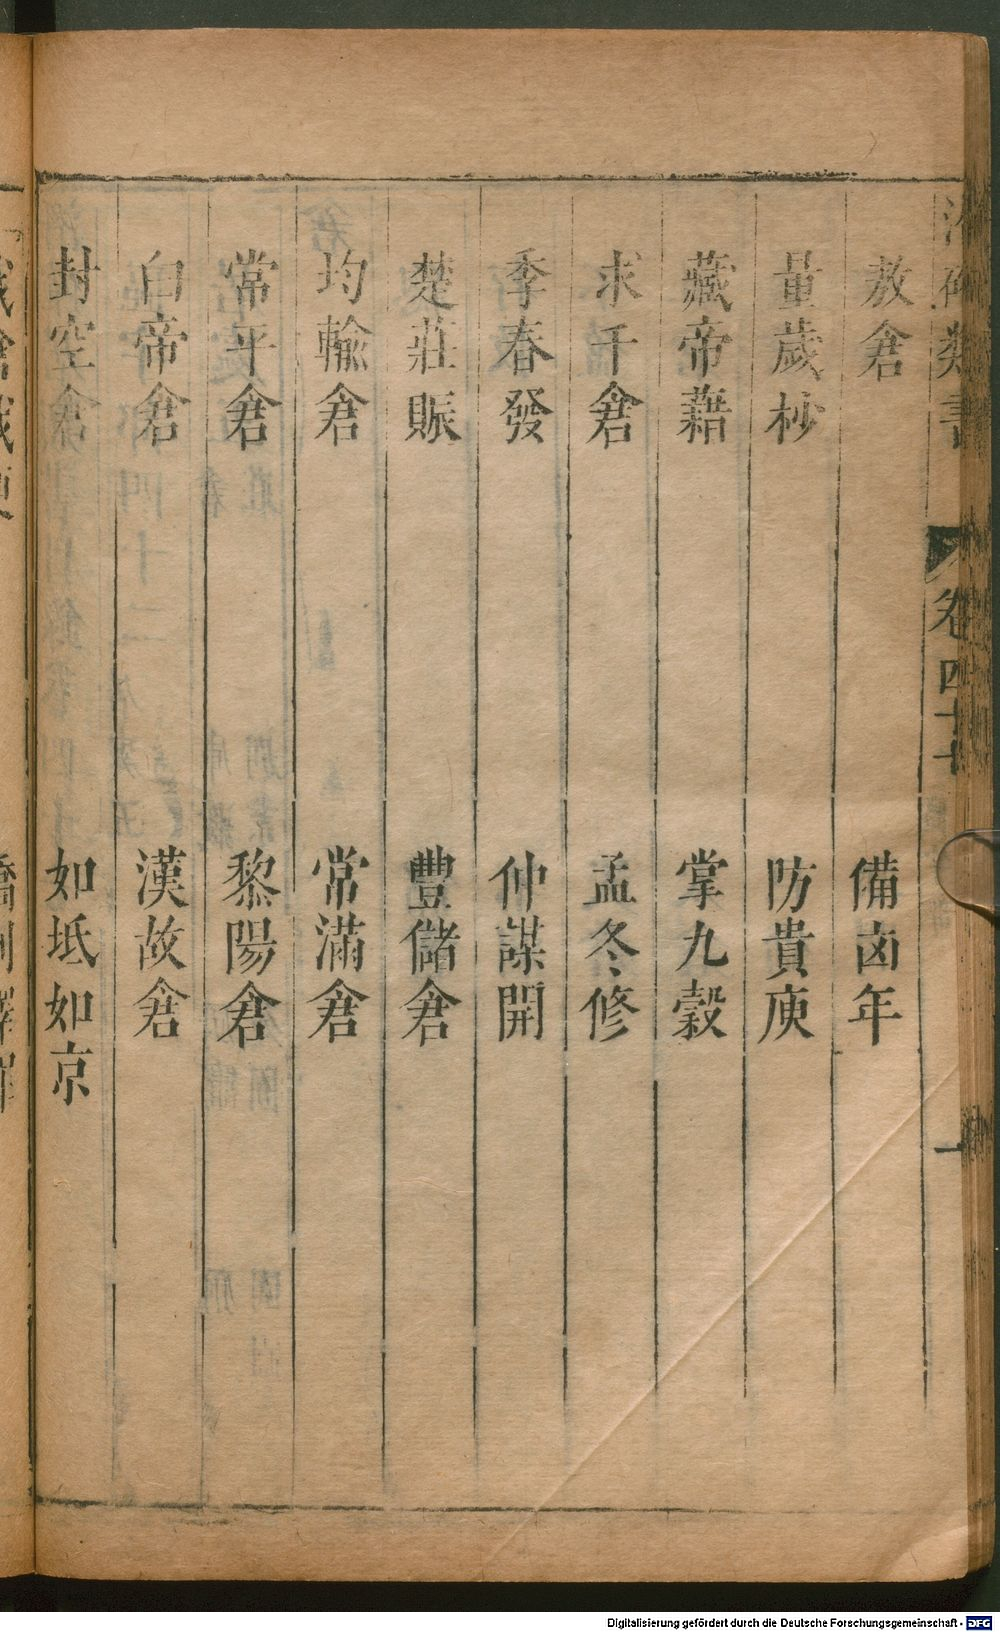 類書 卷四十七 一
敖倉 備凶年
量歲杪 防貴庾
藏帝藉 掌九穀
求千倉 孟冬修
季春發 仲謀開
楚莊賑 豐儲倉
均輸倉 常滿倉
常平倉 黎陽倉
白帝倉 漢故倉
封空倉 如坻如京
Digitalisierung gefördert durch die Deutsche Forschungsgemeinschaft - DFG